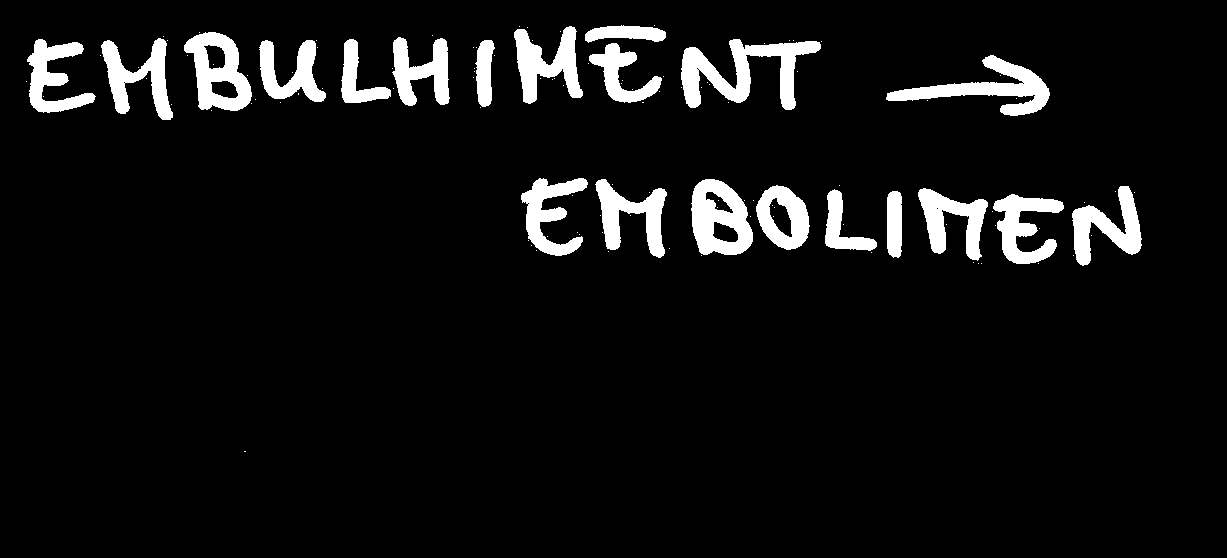 EMBULHIMENT →
EMBOLIMEN